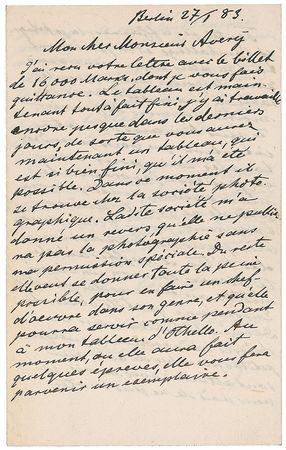 Berlin 27/1 83.
Mon cher Monsieur Avery
J'ai reçu votre lettre avec le billet
de 16000 Marks, dont je vous fais
quittance. Le tableau est main-
tenant tout à fait fini, j'y ai travaillé
encore jusque dans les derniers
jours, de sorte que vous aurez
maintenant un tableau, qui
est si bien fini, qu'il m'a été
possible. Dans ce moment il
se trouve chez la société photo-
graphique. Ladite société m'a
donné un revers qu'elle ne publie
ra pas la photographie sans
ma permission spéciale. Du reste
elle veut se donner toute la peine
possible, pour en faire un chef
d'oeuvre dans son genre, et qu'elle
pourra servir comme pendant
à mon tableau d'Othello. Au
moment, ou elle aura fait
quelques épreuves, elle vous fera
parvenir un exemplaire.